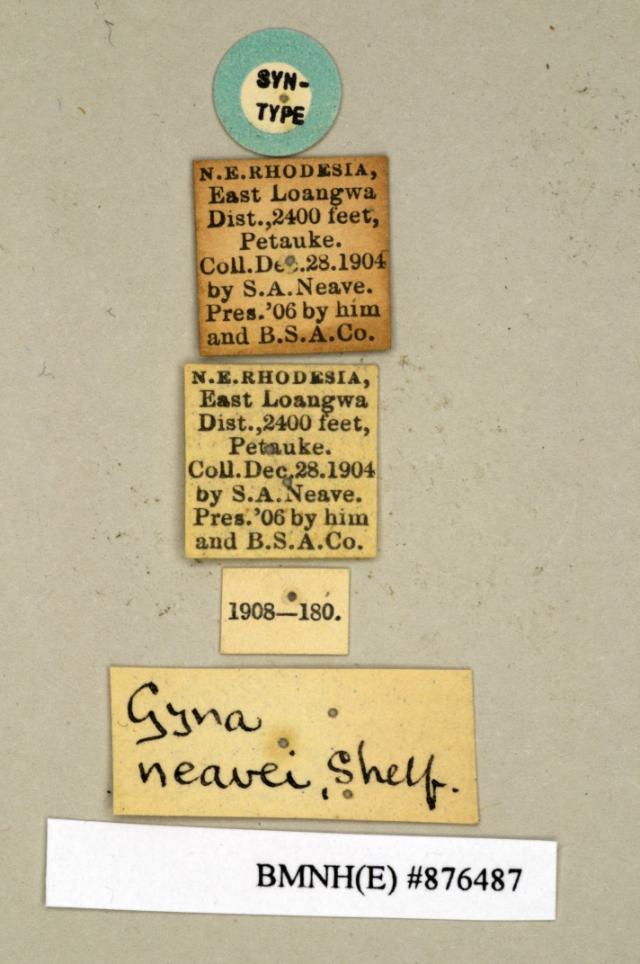 SYN-
TYPE
N.E.RHODESIA,
East Loangwa
Dist.,2400 feet,
Petauke.
Coll.Dec.28.1904
by S.A.Neave.
Pres.'06 by him
and B.S.A.Co.
N.E.RHODESIA,
East Loangwa
Dist.,2400 feet,
Petauke.
Coll.Dec.28.1904
by S.A.Neave.
Pres.'06 by him
and B.S.A.Co.
1908—180.
Gyna
neavei, Shelf.
BMNH(E) #876487